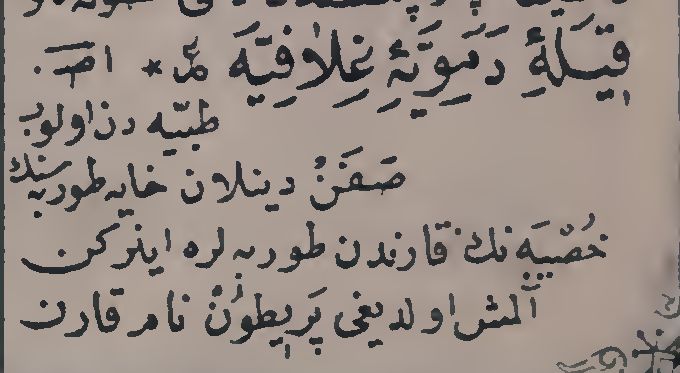 قِيَلَهٔ دَمَوِيَّهٔ غِلَافِيَّه مر * اصـ .
طبيّه دن اولوب
صَفَنْ دينلان خايه طوربه سنك
خُصْيَه نك قارندن طوربه لره اينركن
آلمش اولديغى پَرِيطوُنْ نام قارن